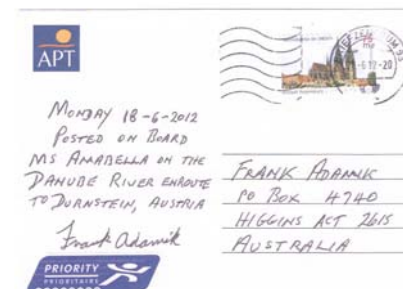 APT
75
MONDAY 18-6-2012
POSTED ON BOARD
MS AMABELLA ON THE
DANUBE RIVER ENROUTE
TO DURNSTEIN, AUSTRIA
Frank Adamik
PRIORITY
PRIORITAIRE
FRANK ADAMIK
PO BOX 4740
HIGGINS ACT 2615
AUSTRALIA